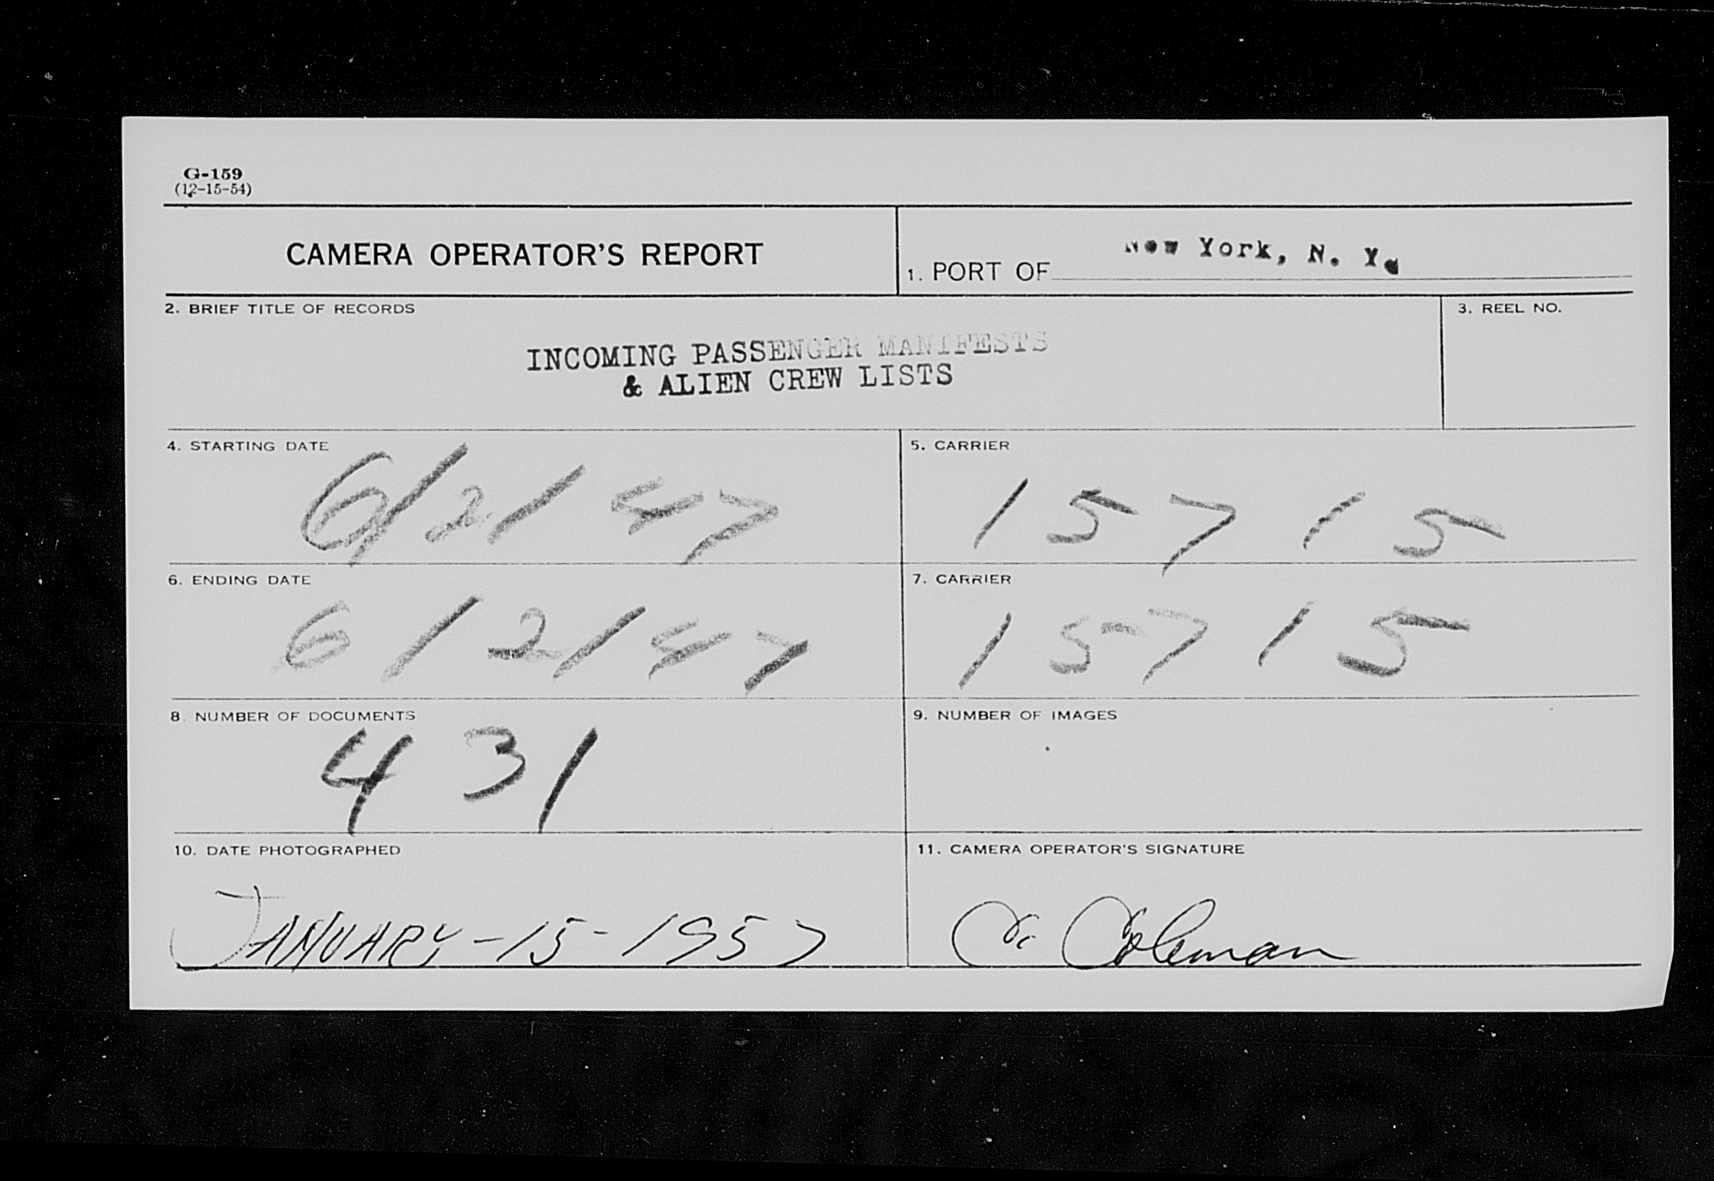 G-159
(12-15-54)
CAMERA OPERATOR'S REPORT
1. PORT OF New York, N. Y.
2. BRIEF TITLE OF RECORDS
3. REEL NO.
INCOMING PASSENGER MANIFESTS
& ALIEN CREW LISTS
4. STARTING DATE
6/2/47
5. CARRIER
15715
6. ENDING DATE
6/2/47
7. CARRIER
15715
8. NUMBER OF DOCUMENTS
431
9. NUMBER OF IMAGES
10. DATE PHOTOGRAPHED
JANUARY-15-1957
11. CAMERA OPERATOR'S SIGNATURE
Coleman